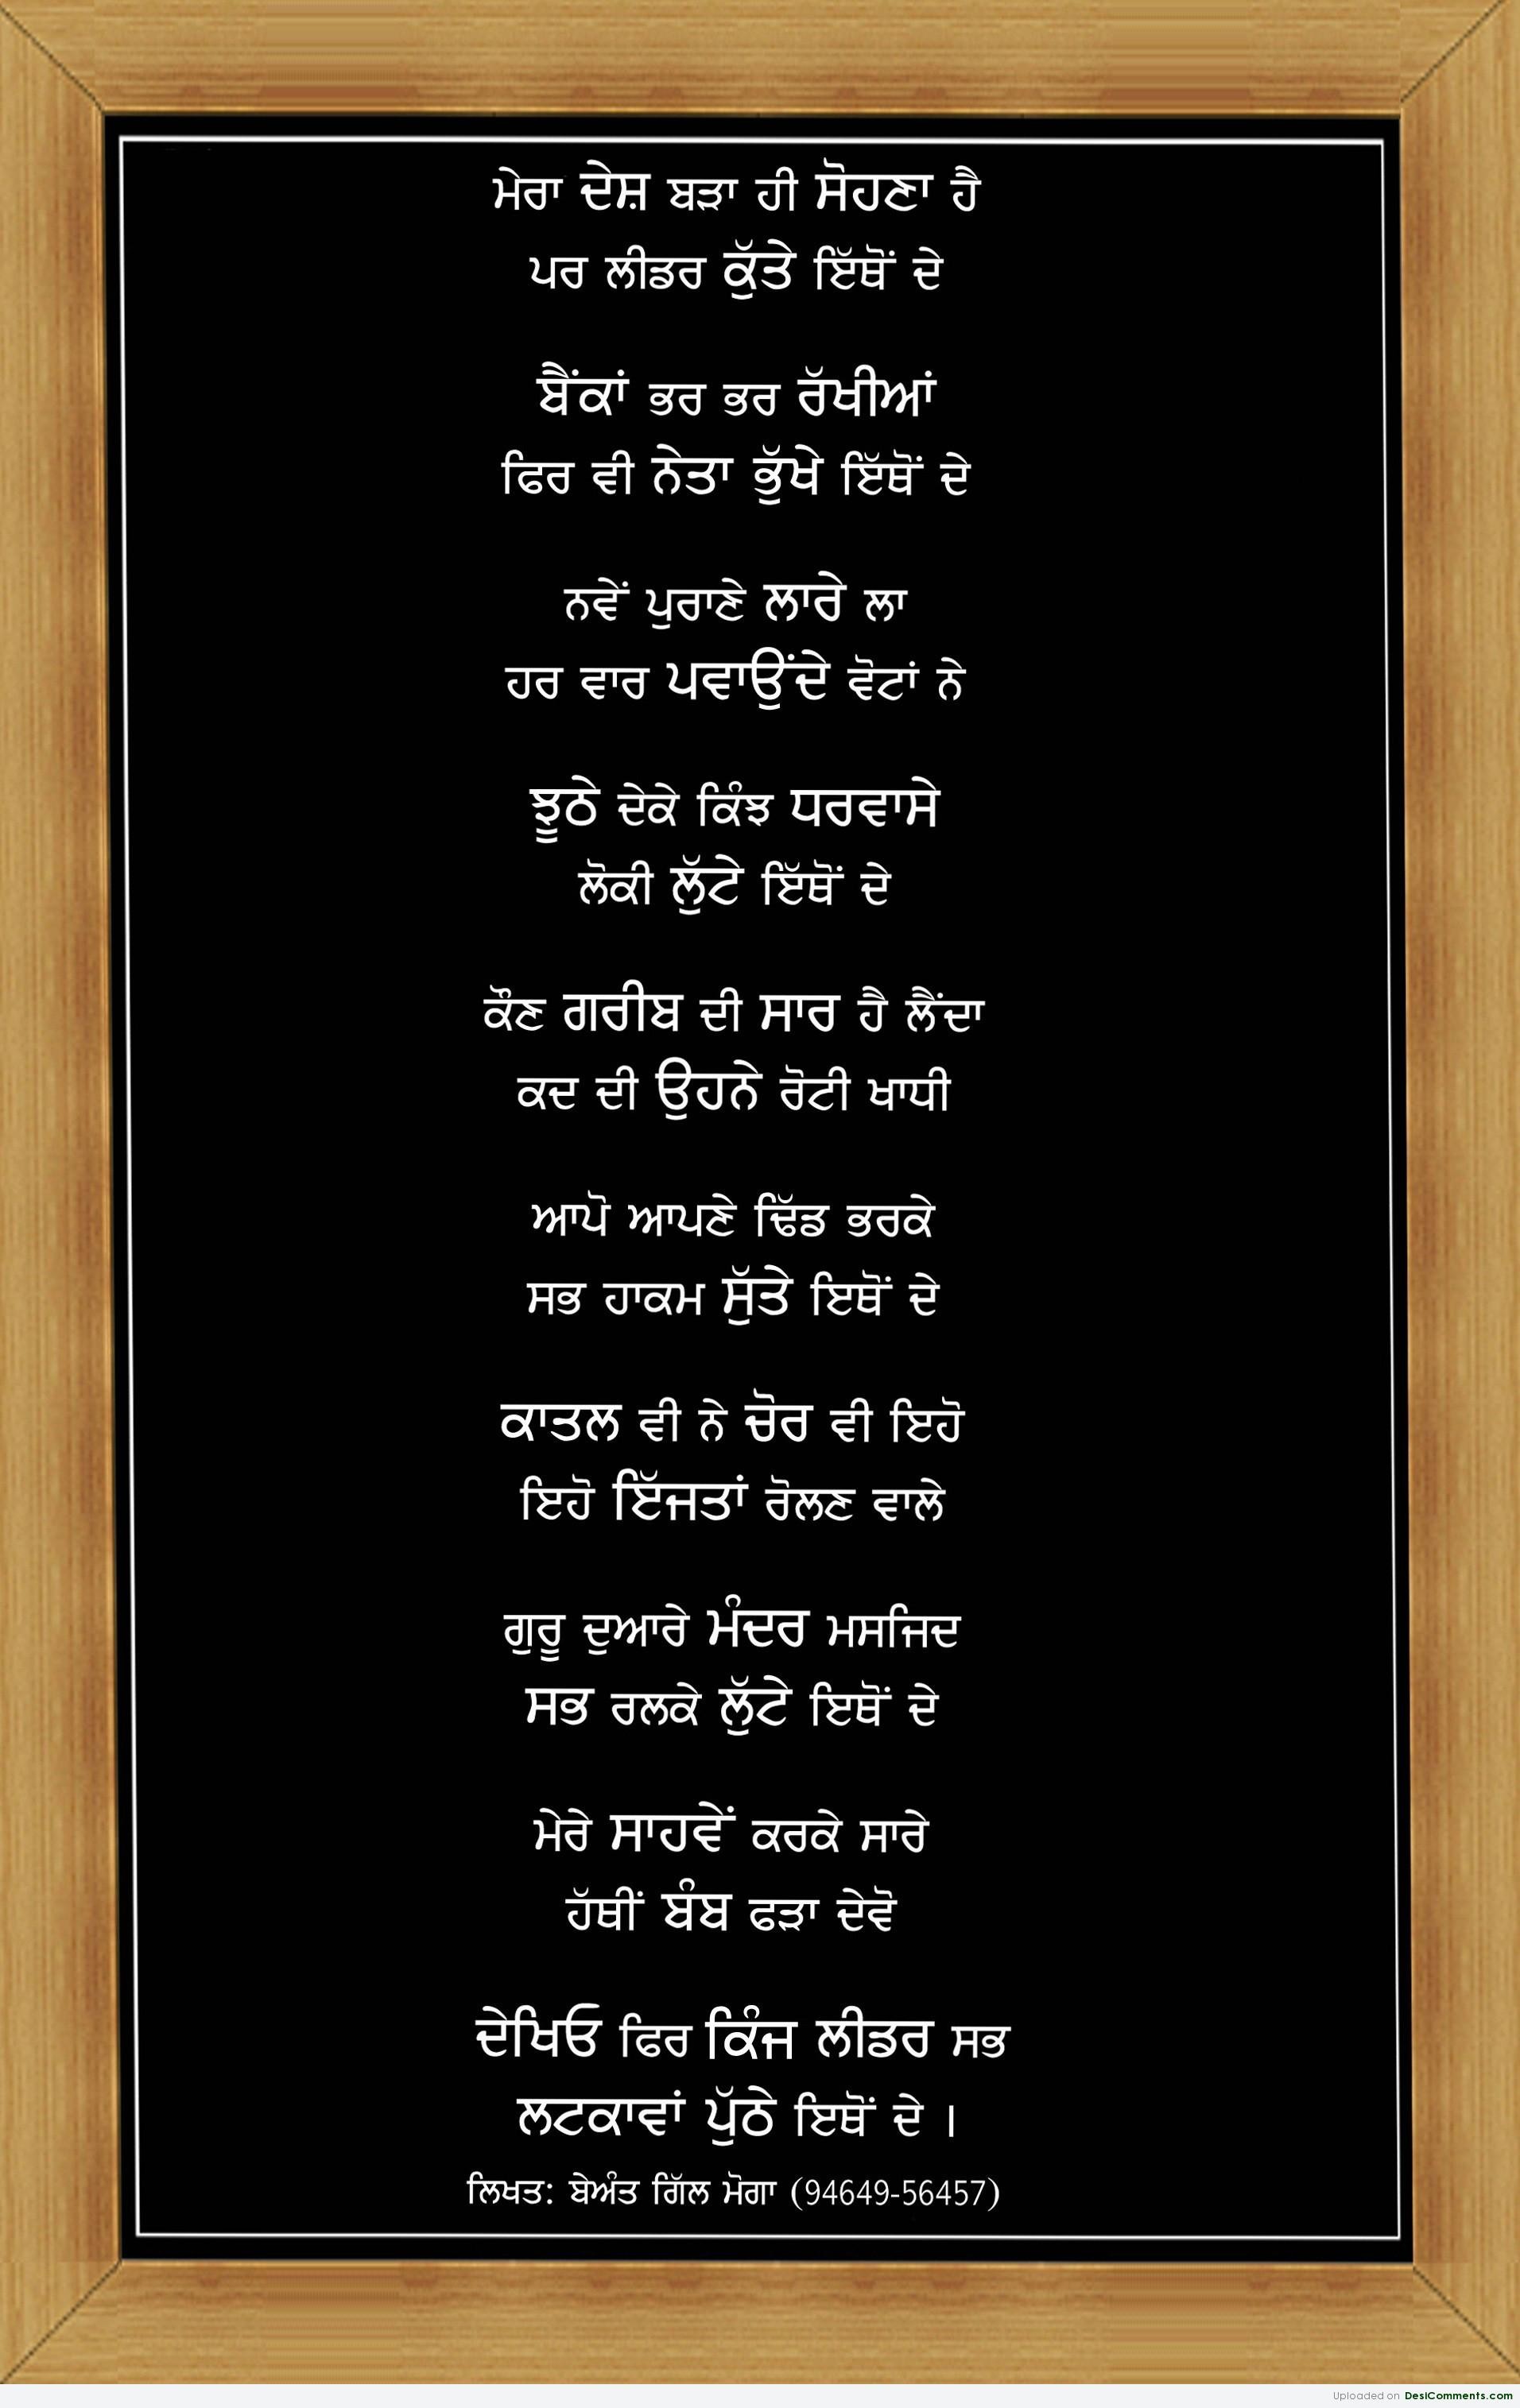 ਮੇਰਾ ਦੇਸ਼ ਬੜਾ ਹੀ ਸੋਹਣਾ ਹੈ
ਪਰ ਲੀਡਰ ਕੁੱਤੇ ਇੱਥੋਂ ਦੇ
ਬੈਂਕਾਂ ਭਰ ਭਰ ਰੱਖੀਆਂ
ਫਿਰ ਵੀ ਨੇਤਾ ਭੁੱਖੇ ਇੱਥੋਂ ਦੇ
ਨਵੇਂ ਪੁਰਾਣੇ ਲਾਰੇ ਲਾ
ਹਰ ਵਾਰ ਪਵਾਉਂਦੇ ਵੋਟਾਂ ਨੇ
ਝੂਠੇ ਦੇਕੇ ਕਿੰਝ ਧਰਵਾਸੇ
ਲੋਕੀ ਲੁੱਟੇ ਇੱਥੋਂ ਦੇ
ਕੌਣ ਗਰੀਬ ਦੀ ਸਾਰ ਹੈ ਲੈਂਦਾ
ਕਦ ਦੀ ਉਹਨੇ ਰੋਟੀ ਖਾਧੀ
ਆਪੋ ਆਪਣੇ ਢਿੱਡ ਭਰਕੇ
ਸਭ ਹਾਕਮ ਸੁੱਤੇ ਇਥੋਂ ਦੇ
ਕਾਤਲ ਵੀ ਨੇ ਚੋਰ ਵੀ ਇਹੋ
ਇਹੋ ਇੱਜਤਾਂ ਰੋਲਣ ਵਾਲੇ
ਗੁਰੂ ਦੁਆਰੇ ਮੰਦਰ ਮਸਜਿਦ
ਸਭ ਰਲਕੇ ਲੁੱਟੇ ਇਥੋਂ ਦੇ
ਮੇਰੇ ਸਾਹਵੇਂ ਕਰਕੇ ਸਾਰੇ
ਹੱਥੀਂ ਬੰਬ ਫੜਾ ਦੇਵੋ
ਦੇਖਿਓ ਫਿਰ ਕਿੰਜ ਲੀਡਰ ਸਭ
ਲਟਕਾਵਾਂ ਪੁੱਠੇ ਇਥੋਂ ਦੇ ।
ਲਿਖਤ: ਬੇਅੰਤ ਗਿੱਲ ਮੋਗਾ (94649-56457)
Uploaded on DesiComments.com